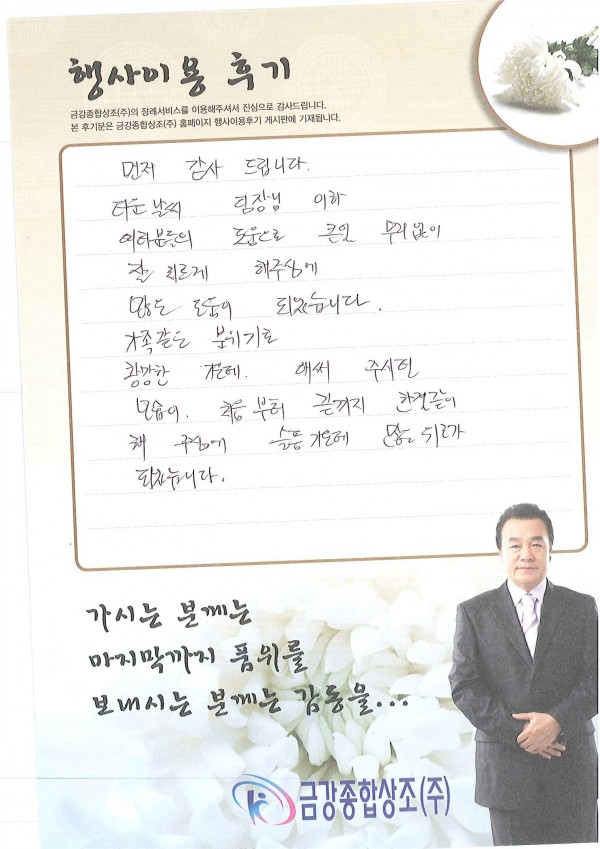 행사이용 후기
금강종합상조(주)의 장례서비스를 이용해주셔서 진심으로 감사드립니다.
본 후기문은 금강종합상조(주) 홈페이지 행사이용후기 게시판에 기재됩니다.
먼저 감사 드립니다.
더운 날씨 팀장님 이하
여타분들의 도움으로 큰일 무리없이
잘 치르게 해주심에
많은 도움이 되었습니다.
가족같은 분위기로
황망한 가운데. 애써 주시던
모습이. 처음 부터 끝까지 한결같이
해 주심에 슬픔 가운데 많은 위로가
되었습니다.
가시는 분께는
마지막까지 품위를
보내시는 분께는 감동을...
금강종합상조(주)